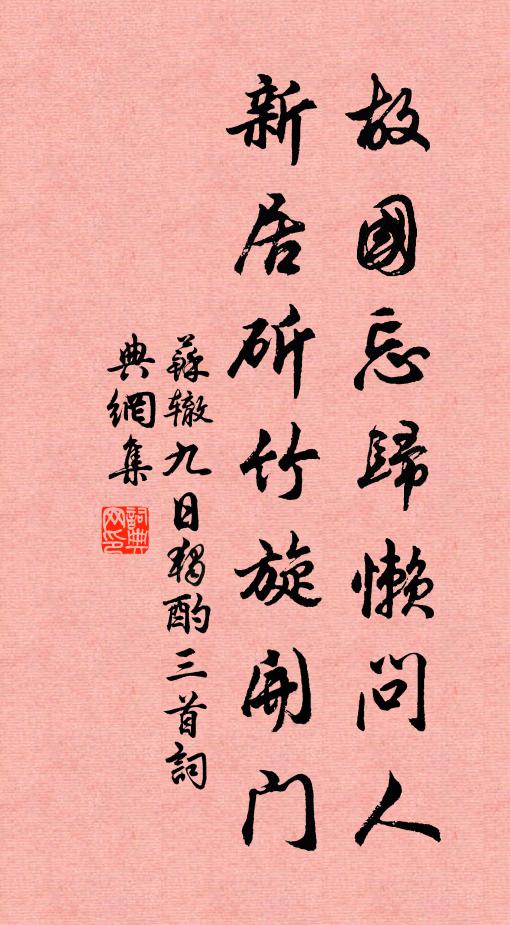 故國忘歸懶問人
新居斫竹旋開門
蘇轍九日獨酌三首詞
典網集
詞典網印